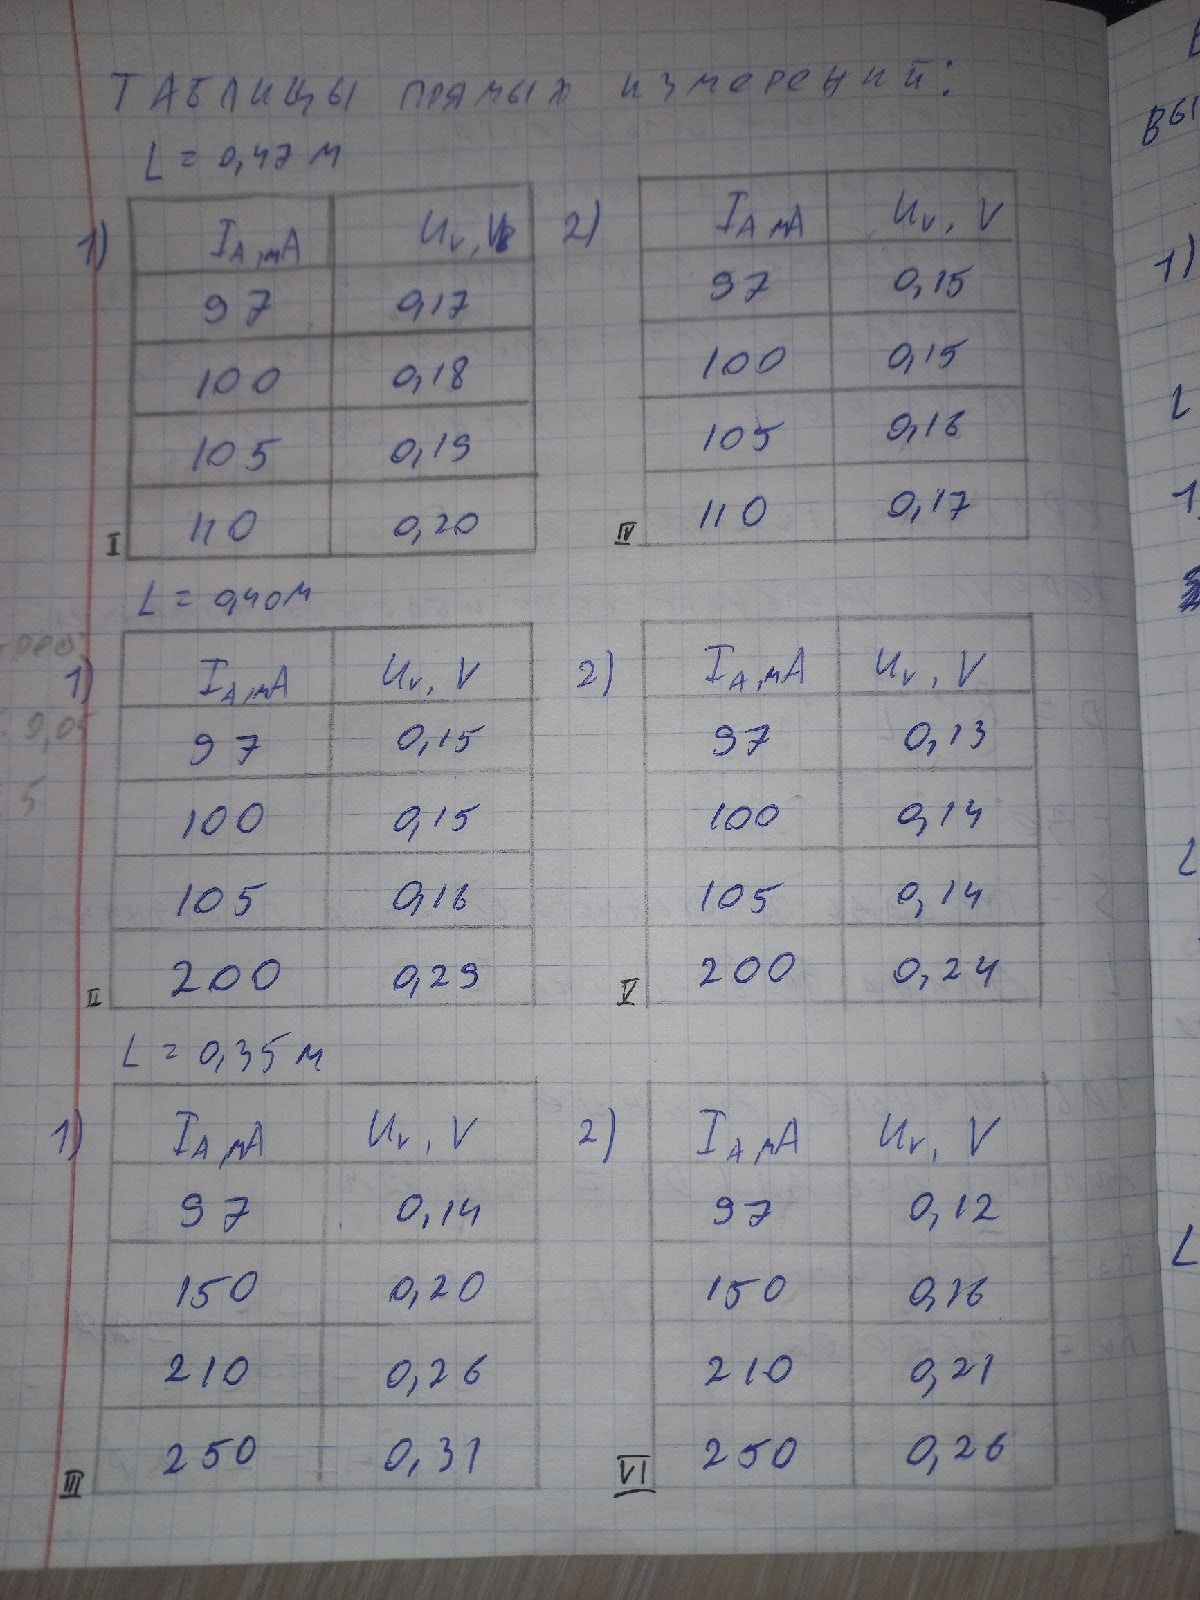 ТАБЛИЦЫ ПРЯМЫХ ИЗМЕРЕНИЙ:
L = 0,47 м
1)
I_A, мА U_V, V
97 0,17
100 0,18
105 0,19
110 0,20
I
2)
I_A, мА U_V, V
97 0,15
100 0,15
105 0,16
110 0,17
IV
L = 0,40 м
1)
I_A, мА U_V, V
97 0,15
100 0,15
105 0,16
200 0,29
II
2)
I_A, мА U_V, V
97 0,13
100 0,14
105 0,14
200 0,24
V
L = 0,35 м
1)
I_A, мА U_V, V
97 0,14
150 0,20
210 0,26
250 0,31
III
2)
I_A, мА U_V, V
97 0,12
150 0,16
210 0,21
250 0,26
VI
1)
L
L
L